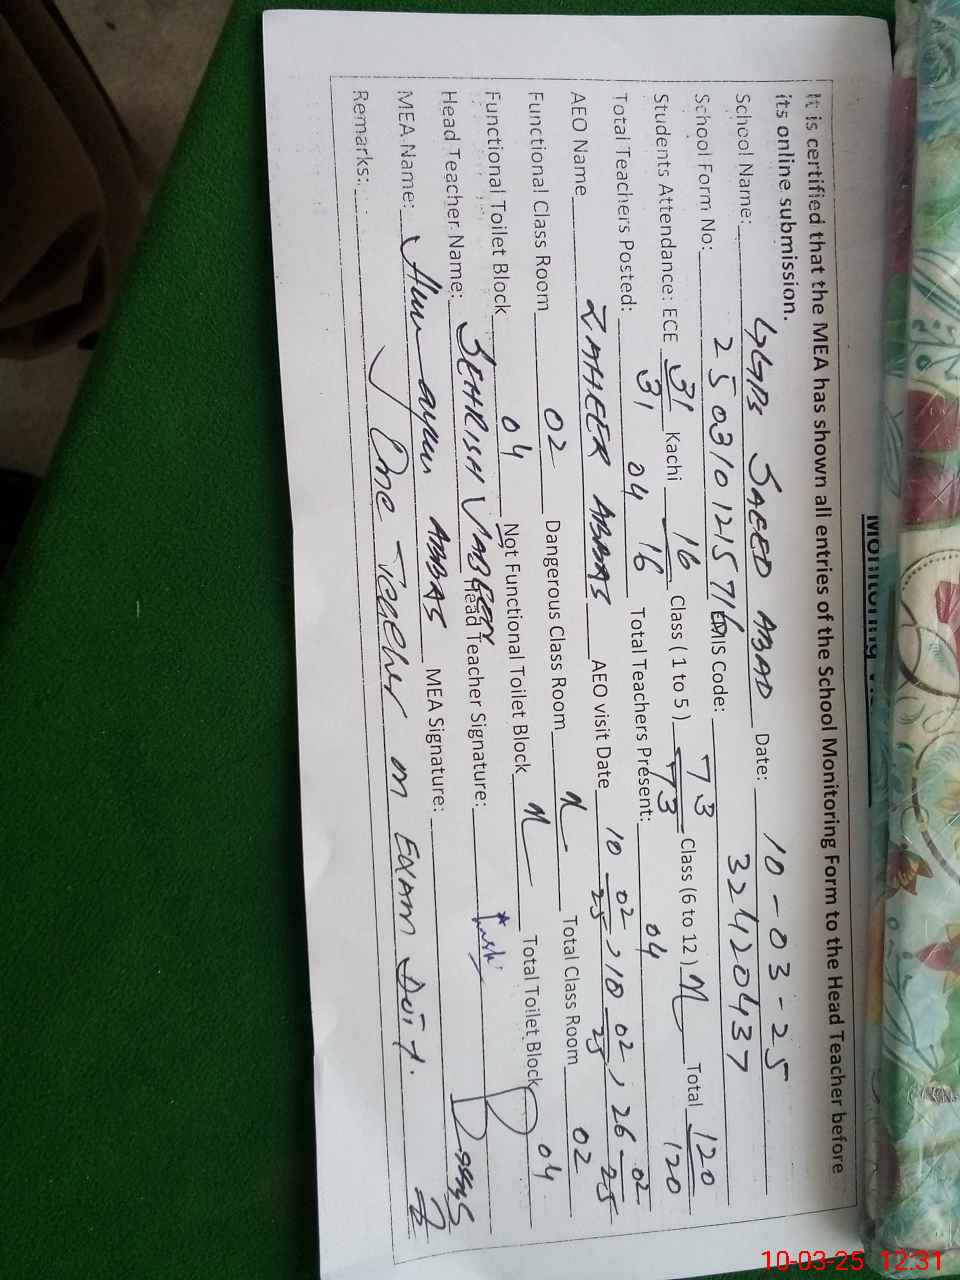 Monitoring Vi
It is certified that the MEA has shown all entries of the School Monitoring Form to the Head Teacher before
its online submission.
School Name: GGPS SAEED ABAD Date: 10-03-25
School Form No: 2503101215716 EMIS Code: 32420437
Students Attendance: ECE 31/31 Kachi 16/16 Class (1 to 5) 73/73 Class (6 to 12) N Total 120/120
Total Teachers Posted: 04 Total Teachers Present: 04
AEO Name ZAHEER ABBAS AEO visit Date 10-02-25, 18-02-25, 26-02-25
Functional Class Room 02 Dangerous Class Room N Total Class Room 02
Functional Toilet Block 04 Not Functional Toilet Block N Total Toilet Block 04
Head Teacher Name: SEHRISH Head Teacher Signature:
MEA Name: Humayun ABBAS MEA Signature:
Remarks: One Teacher on Exam Duty.
10-03-25 12:31